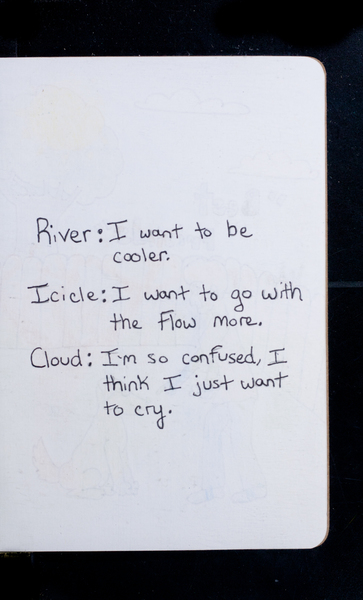 River: I want to be
cooler.
Icicle: I want to go with
the Flow more.
Cloud: I'm so confused, I
think I just want
to cry.